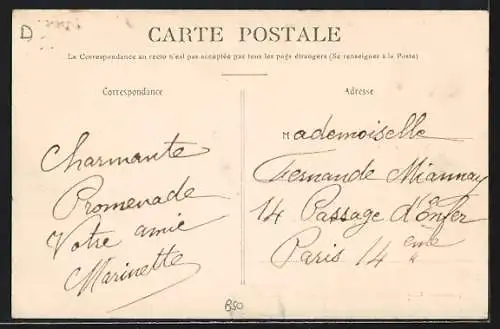 D
CARTE POSTALE
La Correspondance au recto n'est pas acceptée par tous les pays étrangers (Se renseigner à la Poste)
Correspondance
Adresse
Charmante
Promenade
Votre amie
Marinette
Mademoiselle
Fernande Miannay
14 Passage d'Enfer
Paris 14ème
B50